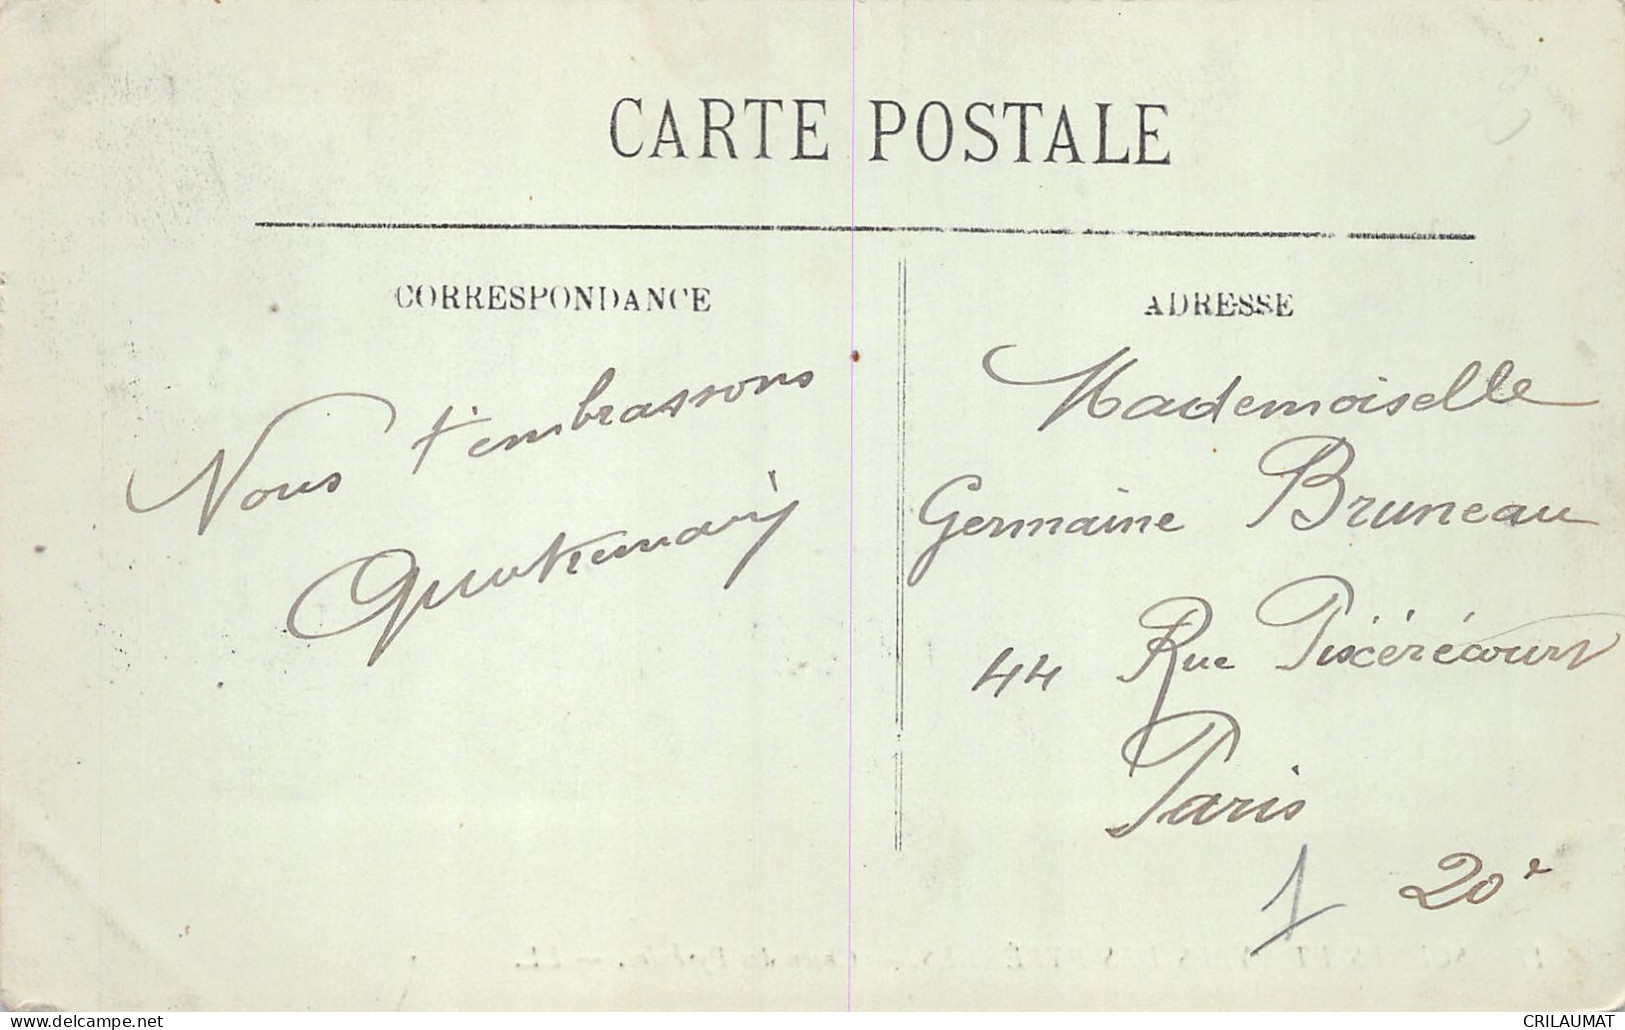 CARTE POSTALE
CORRESPONDANCE
ADRESSE
Nous t'embrassons
Mademoiselle
Germaine Bruneau
44 Rue Pixérécourt
Paris
1 20e
www.delcampe.net
CRILAUMAT